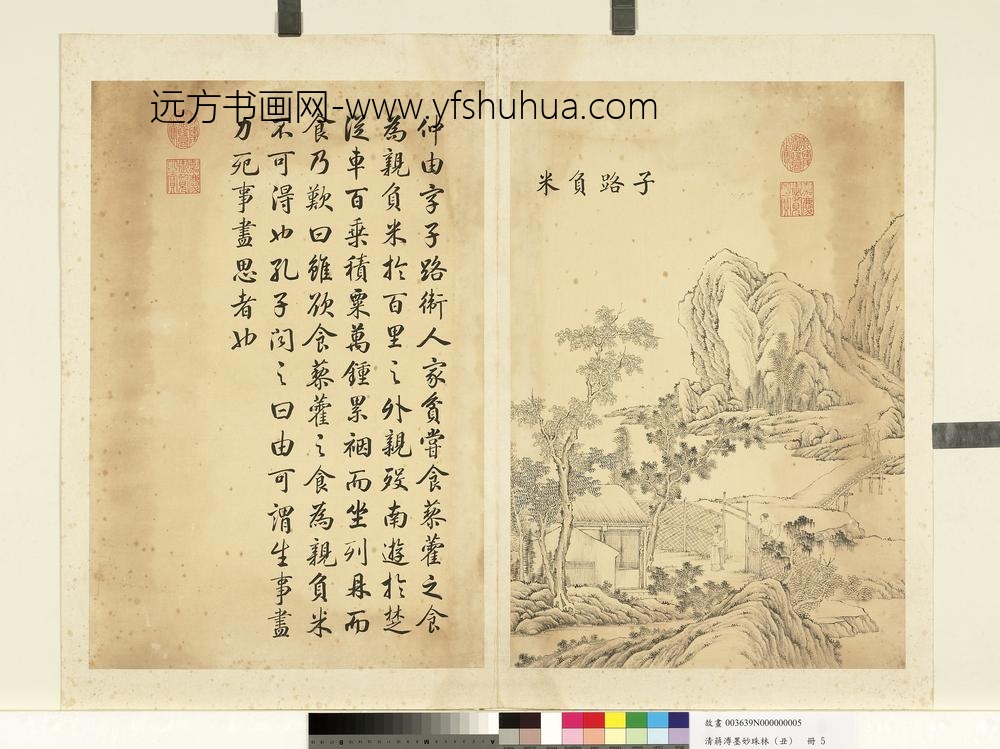 远方书画网-www.yfshuhua.com
子路負米
仲由字子路衛人家貧嘗食藜藿之食
為親負米於百里之外親歿南遊於楚
從車百乗積粟萬鍾累裀而坐列鼎而
食乃歎曰雖欲食藜藿之食為親負米
不可得也孔子闻之曰由可謂生事盡
力死事盡思者也
故畫 003639N000000005
清蔣溥墨妙珠林（丑） 冊 5